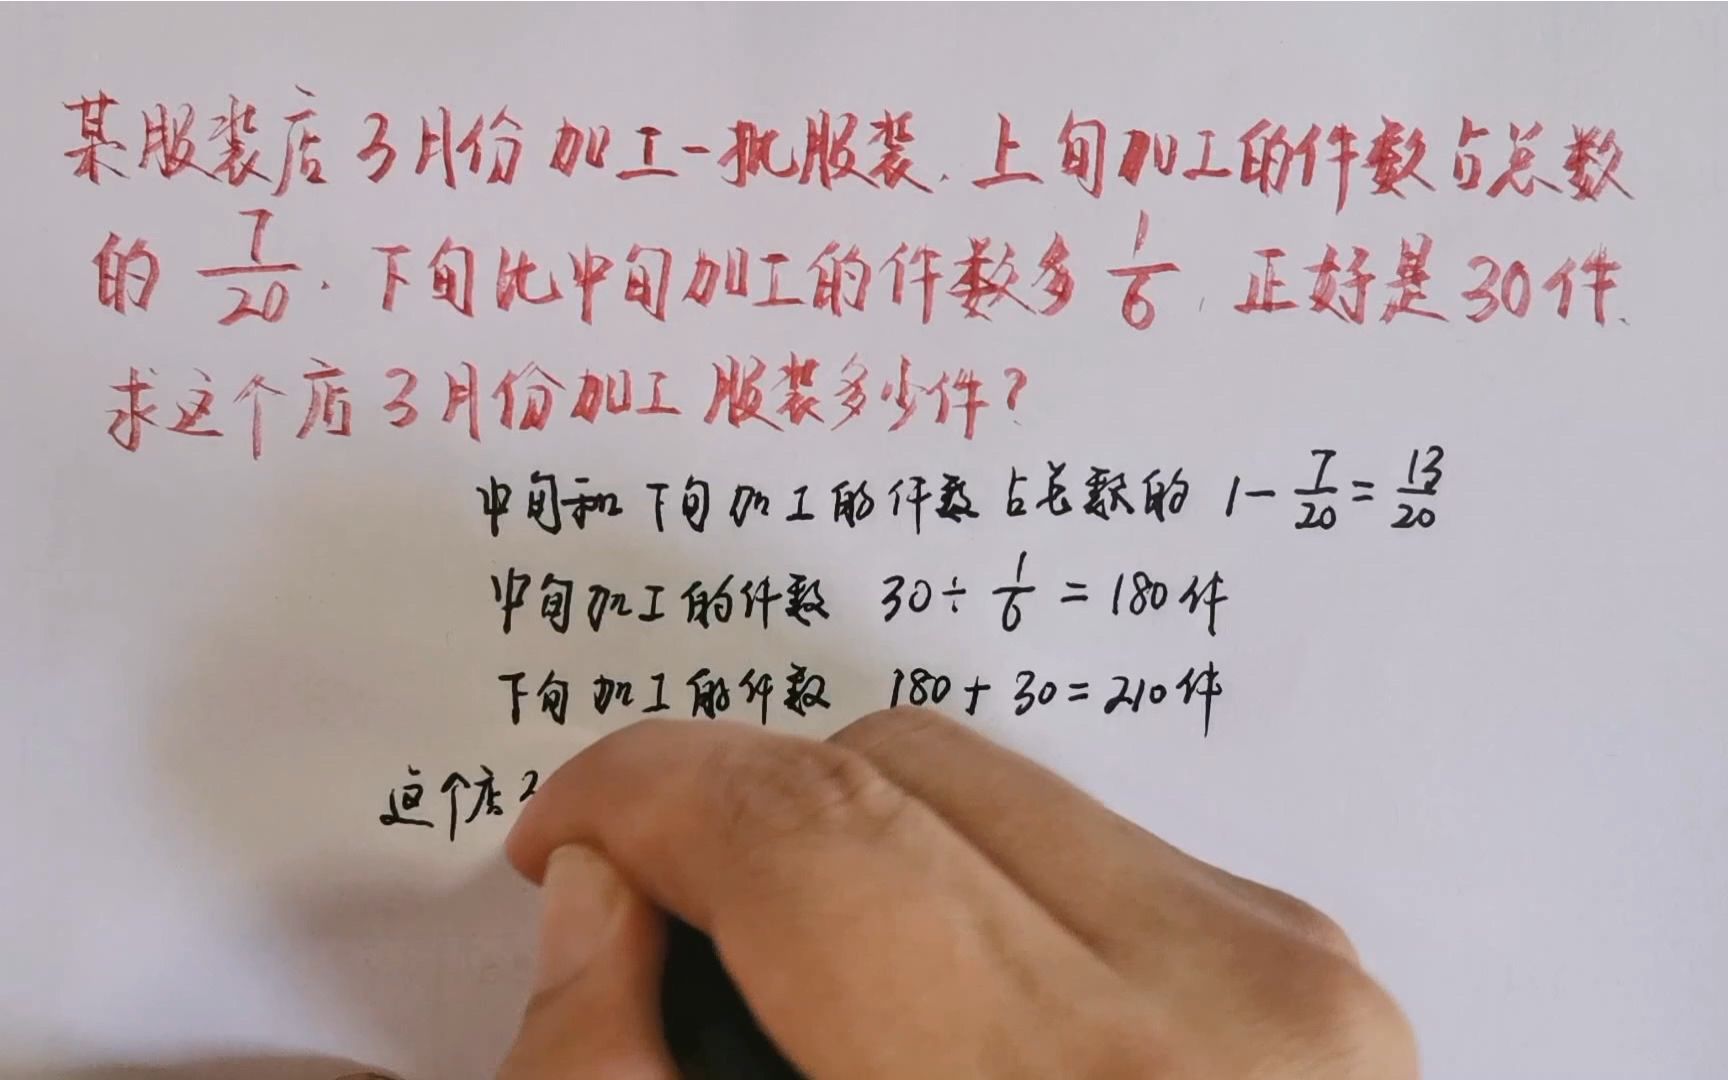 某服装店3月份加工一批服装.上旬加工的件数占总数
的 7/20.下旬比中旬加工的件数多 1/6,正好是30件.
求这个店3月份加工服装多少件?
中旬和下旬加工的件数占总数的 1-7/20=13/20
中旬加工的件数 30÷1/6=180件
下旬加工的件数 180+30=210件
这个店